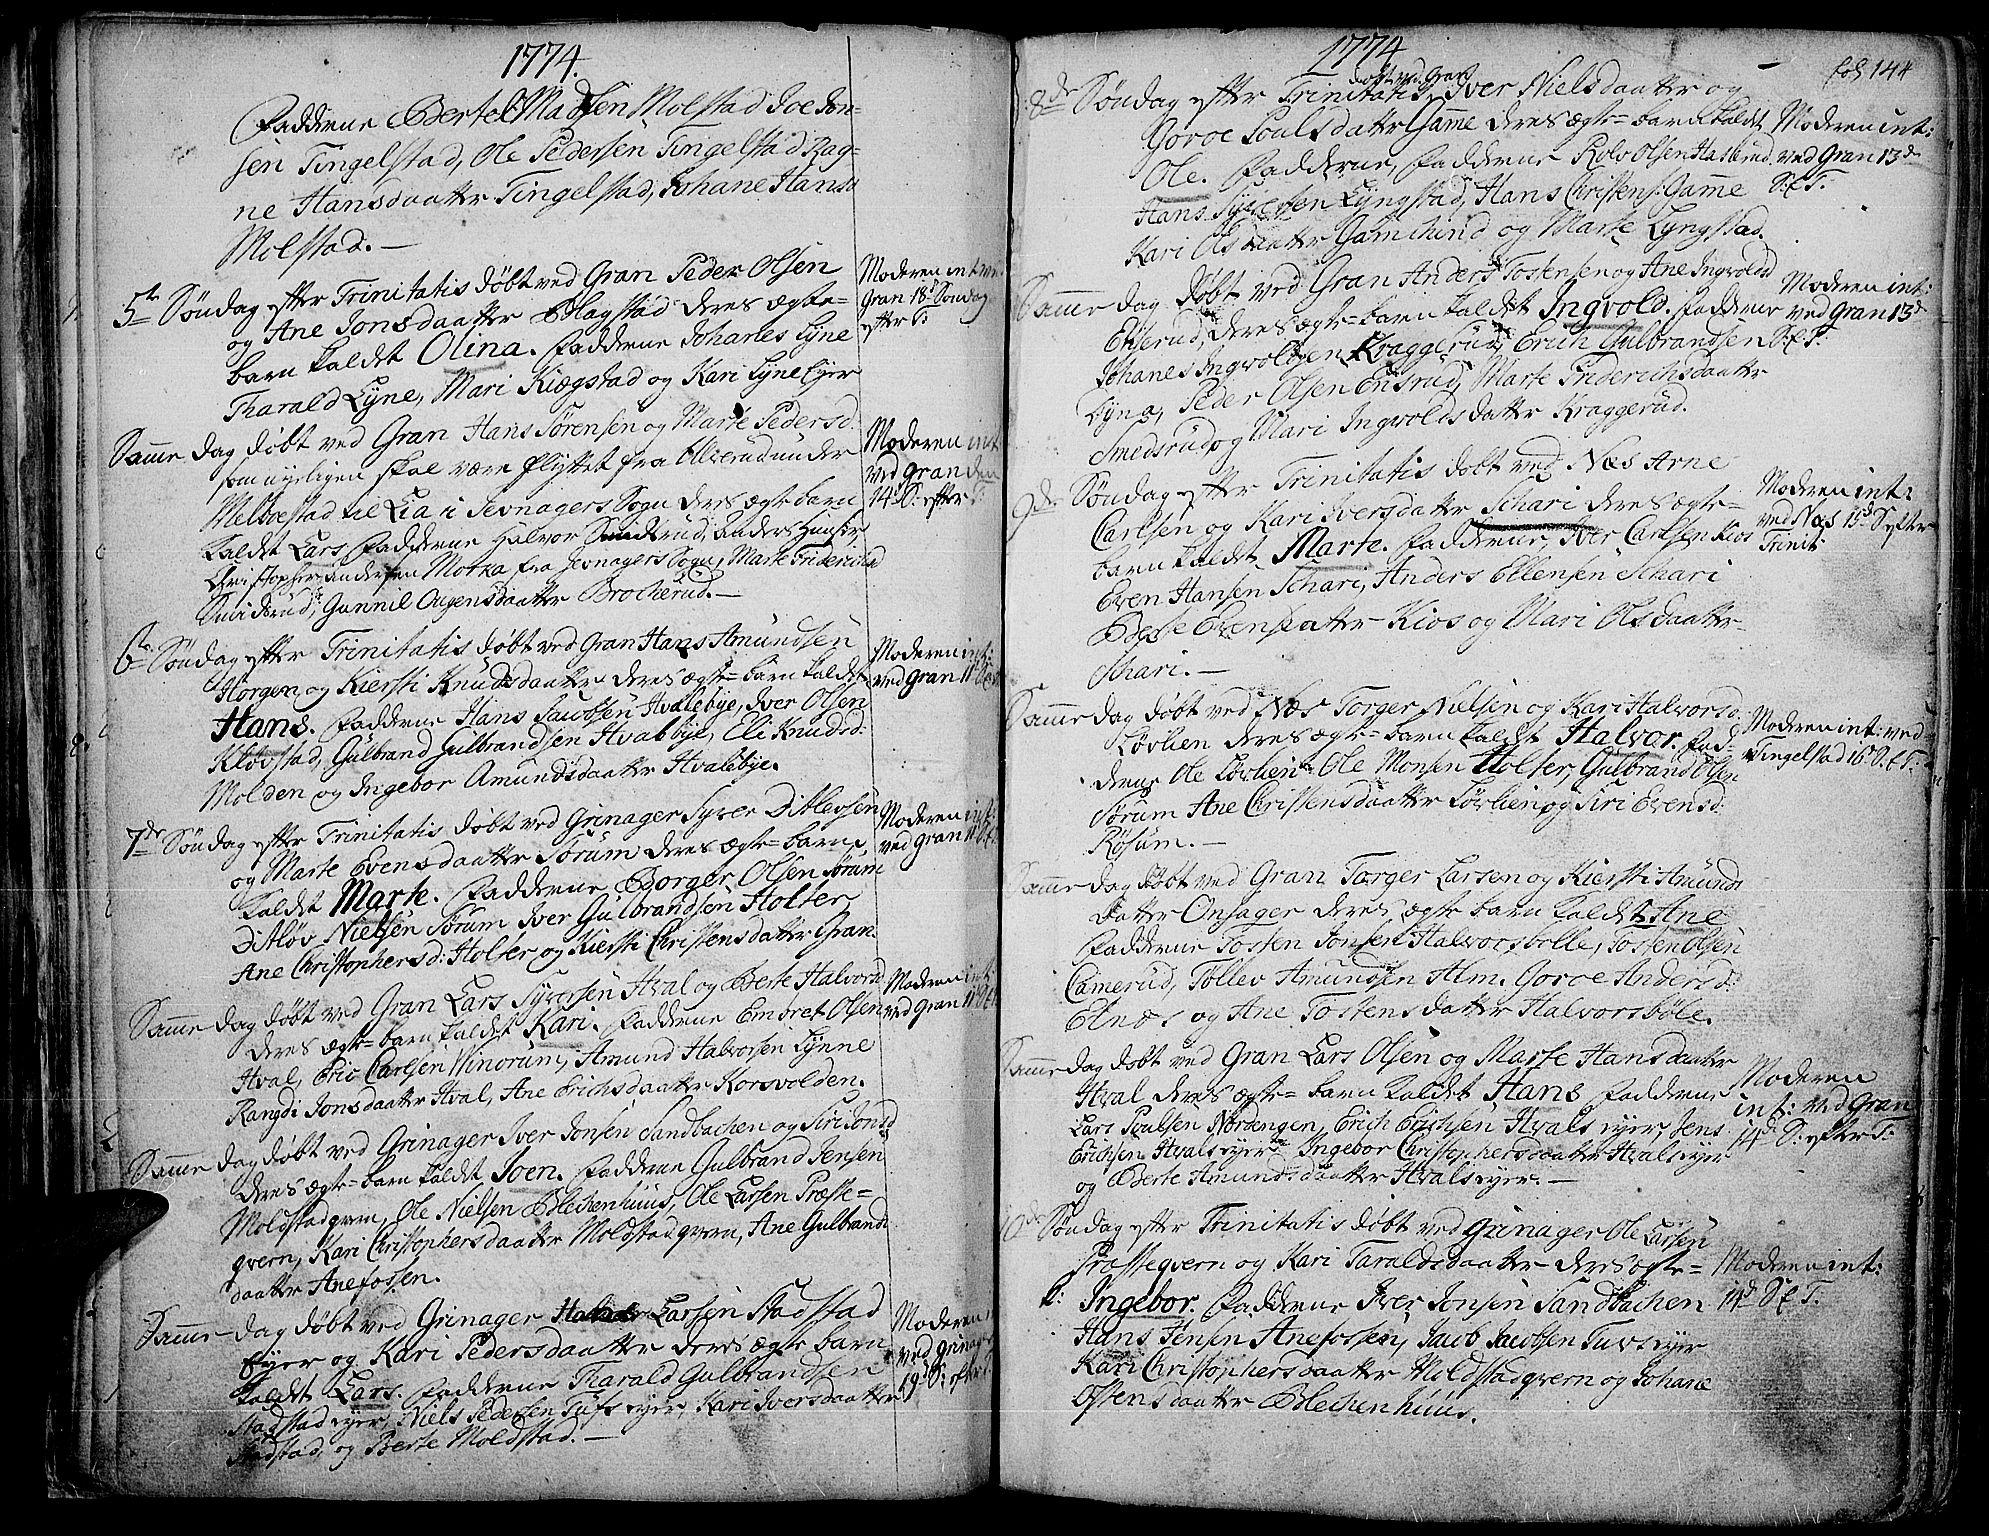 1774.
Fadderne Bertel Madsen Molstad Joe Jon-
sen Tingelstad, Ole Pedersen Tingelstad Rag-
ne Hansdaatter Tingelstad, Johane Hans
Molstad. —
5te Søndag efter Trinitatis døbt ved Gran Peder Olsen
og Ane Jonsdaatter Hagstad deres ægte-
barn kaldet Olina. Fadderne Johanes Lyne
Tharald Lyne, Mari Kiægstad og Kari Lyne Eyer
Moderen int ved
Gran 18d Søndag
efter T:
Samme dag døbt ved Gran Hans Sørensen og Marte Pedersd.
som nyeligen skal være flyttet fra Ulverud under
Melboestad til Lia i Jevnagers Sogn deres ægte barn
kaldet Lars, Fadderne Halvor Smidsrud, Anders
Christopher Andersen Morka fra Jevnagers Sogn, Marte Friderichsd
Smidsrud, Gunnil Augensdaatter Brocherud. —
Moderen int
ved Gran den
14d S: efter T:
6te Søndag efter Trinitatis døbt ved Gran Hans Amundsen
Horgen og Kiersti Knudsdaatter deres ægte- barn kaldet
Hans. Fadderne Hans Jacobsen Hvalebye, Iver Olsen
Kløvstad, Gulbrand Gulbrandsen Hvalbye, Eli Knudsd:
Molden og Ingebor Amundsdaatter Hvalebye.
Moderen int:
ved Gran 11d S: e T
7de Søndag efter Trinitatis døbt ved Grinager Syver Ditlevsen
og Marte Evensdaatter Sørum deres ægte- barn
kaldet Marte. Fadderne Borger Olsen Sørum
Ditløv Nielsen Sørum Iver Gulbrandsen Holter
Ane Christophersd: Holter og Kiersti Christensdatter Gran.
Moderen int:
ved Gran 11d S: e T
Samme dag døbt ved Gran Lars Syversen Hval og Berte Halvorsd
deres ægte- barn kaldet Kari. Fadderne Embret Olsen
Hval, Eric Carlsen Winorum, Amund Halvorsen Lynne
Rangdi Jonsdaatter Hval, Ane Erichsdaatter Korsvolden.
Moderen int:
ved Gran 11d S: e T
Samme dag døbt ved Grinager Iver Jonsen Sandbachen og Siri Jonsd
deres ægte- barn kaldet Joen. Fadderne Gulbrand Jensen
Moldstadqvern, Ole Nielsen Blechenhuus, Ole Larsen Præste-
qvern, Kari Christophersdaatter Moldstadqvern, Ane Gulbrands
daatter Anefossen.
Samme dag døbt ved Grinager Larsen Stadstad
Eyer og Kari Pedersdaatter deres ægte barn
kaldet Lars. Fadderne Tharald Gulbrandsen
Stadstad eyer, Niels Pedersen Tufs eyer, Kari Iversdaatter
Stadstad, og Berte Moldstad. —
Moderen
ved Grinager
19d S: efter T
1774
fol 144
8de Søndag efter Trinitatis døbt ved Gran Iver Nielsdaatter og
Goroe Poulsdatter Game deres ægte- barn kaldet
Ole. Fadderne, Fadderne Rolv Olsen Hasbrud
Hans Syversen Lyngstad, Hans Christens: Gamme
Kari Olsdaatter Gamehind og Marte Lyngstad.
Moderen int:
ved Gran 13d
S: e T:
Samme dag døbt ved Gran Anders Tostensen og Ane Ingvolds
Enserud, deres ægte- barn kaldet Ingvold. Fadderne
Johanes Ingvoldsen Kraggerud, Erich Gulbrandsen
Lyna, Peder Olsen Ensrud, Marte Friderichsdaatter
Smedsrud og Mari Ingvoldsdatter Kraggerud.
Moderen int:
ved Gran 13d
S: e T:
9de Søndag efter Trinitatis døbt ved Næs Arne
Carlsen og Kari Iversdatter Schari deres ægte-
barn kaldet Marte. Fadderne, Iver Carlsen Kios
Even Hansen Schari, Anders Ellensen Schari
Berte Evensdatter Kios og Mari Olsdaatter
Schari. —
Moderen int:
ved Næs 15d S efter
Trinit:
Samme dag døbt ved Næs Torger Nielsen og Kari Halvorsd.
Løvlien deres ægte- barn kaldet Halvor. Fad-
derne Ole Løvlien Ole Monsen Holter, Gulbrand Olsen
Sørum Ane Christensdaatter Løvlien og Siri Evensd.
Røsum. —
Moderen int: ved
Tingelstad 16d S. e T.
Samme dag døbt ved Gran Torger Larsen og Kiersti Amunds
datter Onsager deres ægte barn kaldet Ane
Fadderne Tosten Jonsen Halvorsbølle, Tosten Olsen
Camerud, Tollev Amundsen Alm. Goroe Andersd:
Etnæs og Ane Tostensdatter Halvorsbøle.
Samme dag døbt ved Gran Lars Olsen og Marte Hansdaatter
Hval deres ægte- barn kaldet Hans Fadderne
Lars Poulsen Nordengen, Erich Erichsen Hvals eyer, Jens
Erichsen Hvals eyer Ingebor Christophersdaatter Hvals eyer
og Berte Amundsdaatter Hvals eyer. —
Moderen
int: ved Gran
14d S: efter T:
10de Søndag efter Trinitatis døbt ved Grinager Ole Larsen
Præsteqvern og Kari Taraldsdaatter deres ægte-
b: Ingebor. Fadderne Iver Jonsen Sandbachen
Hans Jensen Anefossen, Jacob Jacobsen Tuvs eyer
Kari Christophersdaatter Moldstadqvern og Johane
Ostensdaatter Blechenhuus.
Moderen int:
14d S. e T.